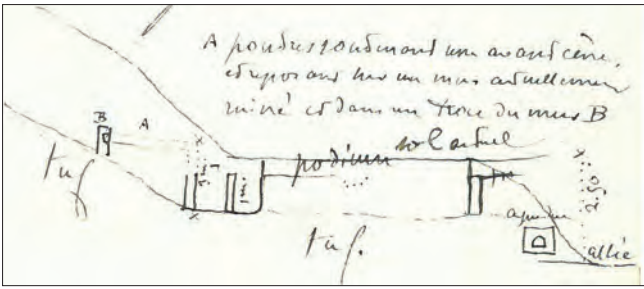 A poutres soutenant une avant scène,
et reposant sur un mur actuellement
ruiné et dans un trou du mur B
B
A
sol actuel
podium
tuf
2.50
tuf.
allée